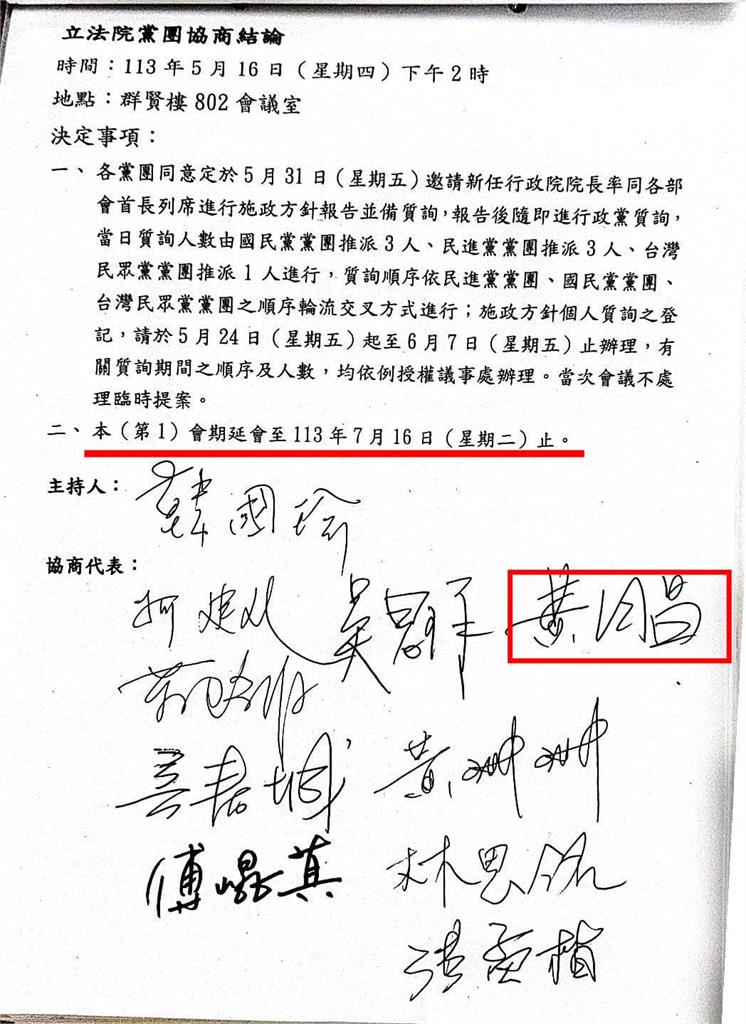 立法院黨團協商結論
時間：113年5月16日（星期四）下午2時
地點：群賢樓802會議室
決定事項：
一、各黨團同意定於5月31日（星期五）邀請新任行政院院長率同各部
會首長列席進行施政方針報告並備質詢，報告後隨即進行政黨質詢，
當日質詢人數由國民黨黨團推派3人、民進黨黨團推派3人、台灣
民眾黨黨團推派1人進行，質詢順序依民進黨黨團、國民黨黨團、
台灣民眾黨黨團之順序輪流交叉方式進行；施政方針個人質詢之登
記，請於5月24日（星期五）起至6月7日（星期五）止辦理，有
關質詢期間之順序及人數，均依例授權議事處辦理。當次會議不處
理臨時提案。
二、本（第1）會期延會至113年7月16日（星期二）止。
主持人：
韓國瑜
協商代表：
柯建銘 吳思瑤 黃國昌
黃珊珊
傅崐萁 林思銘